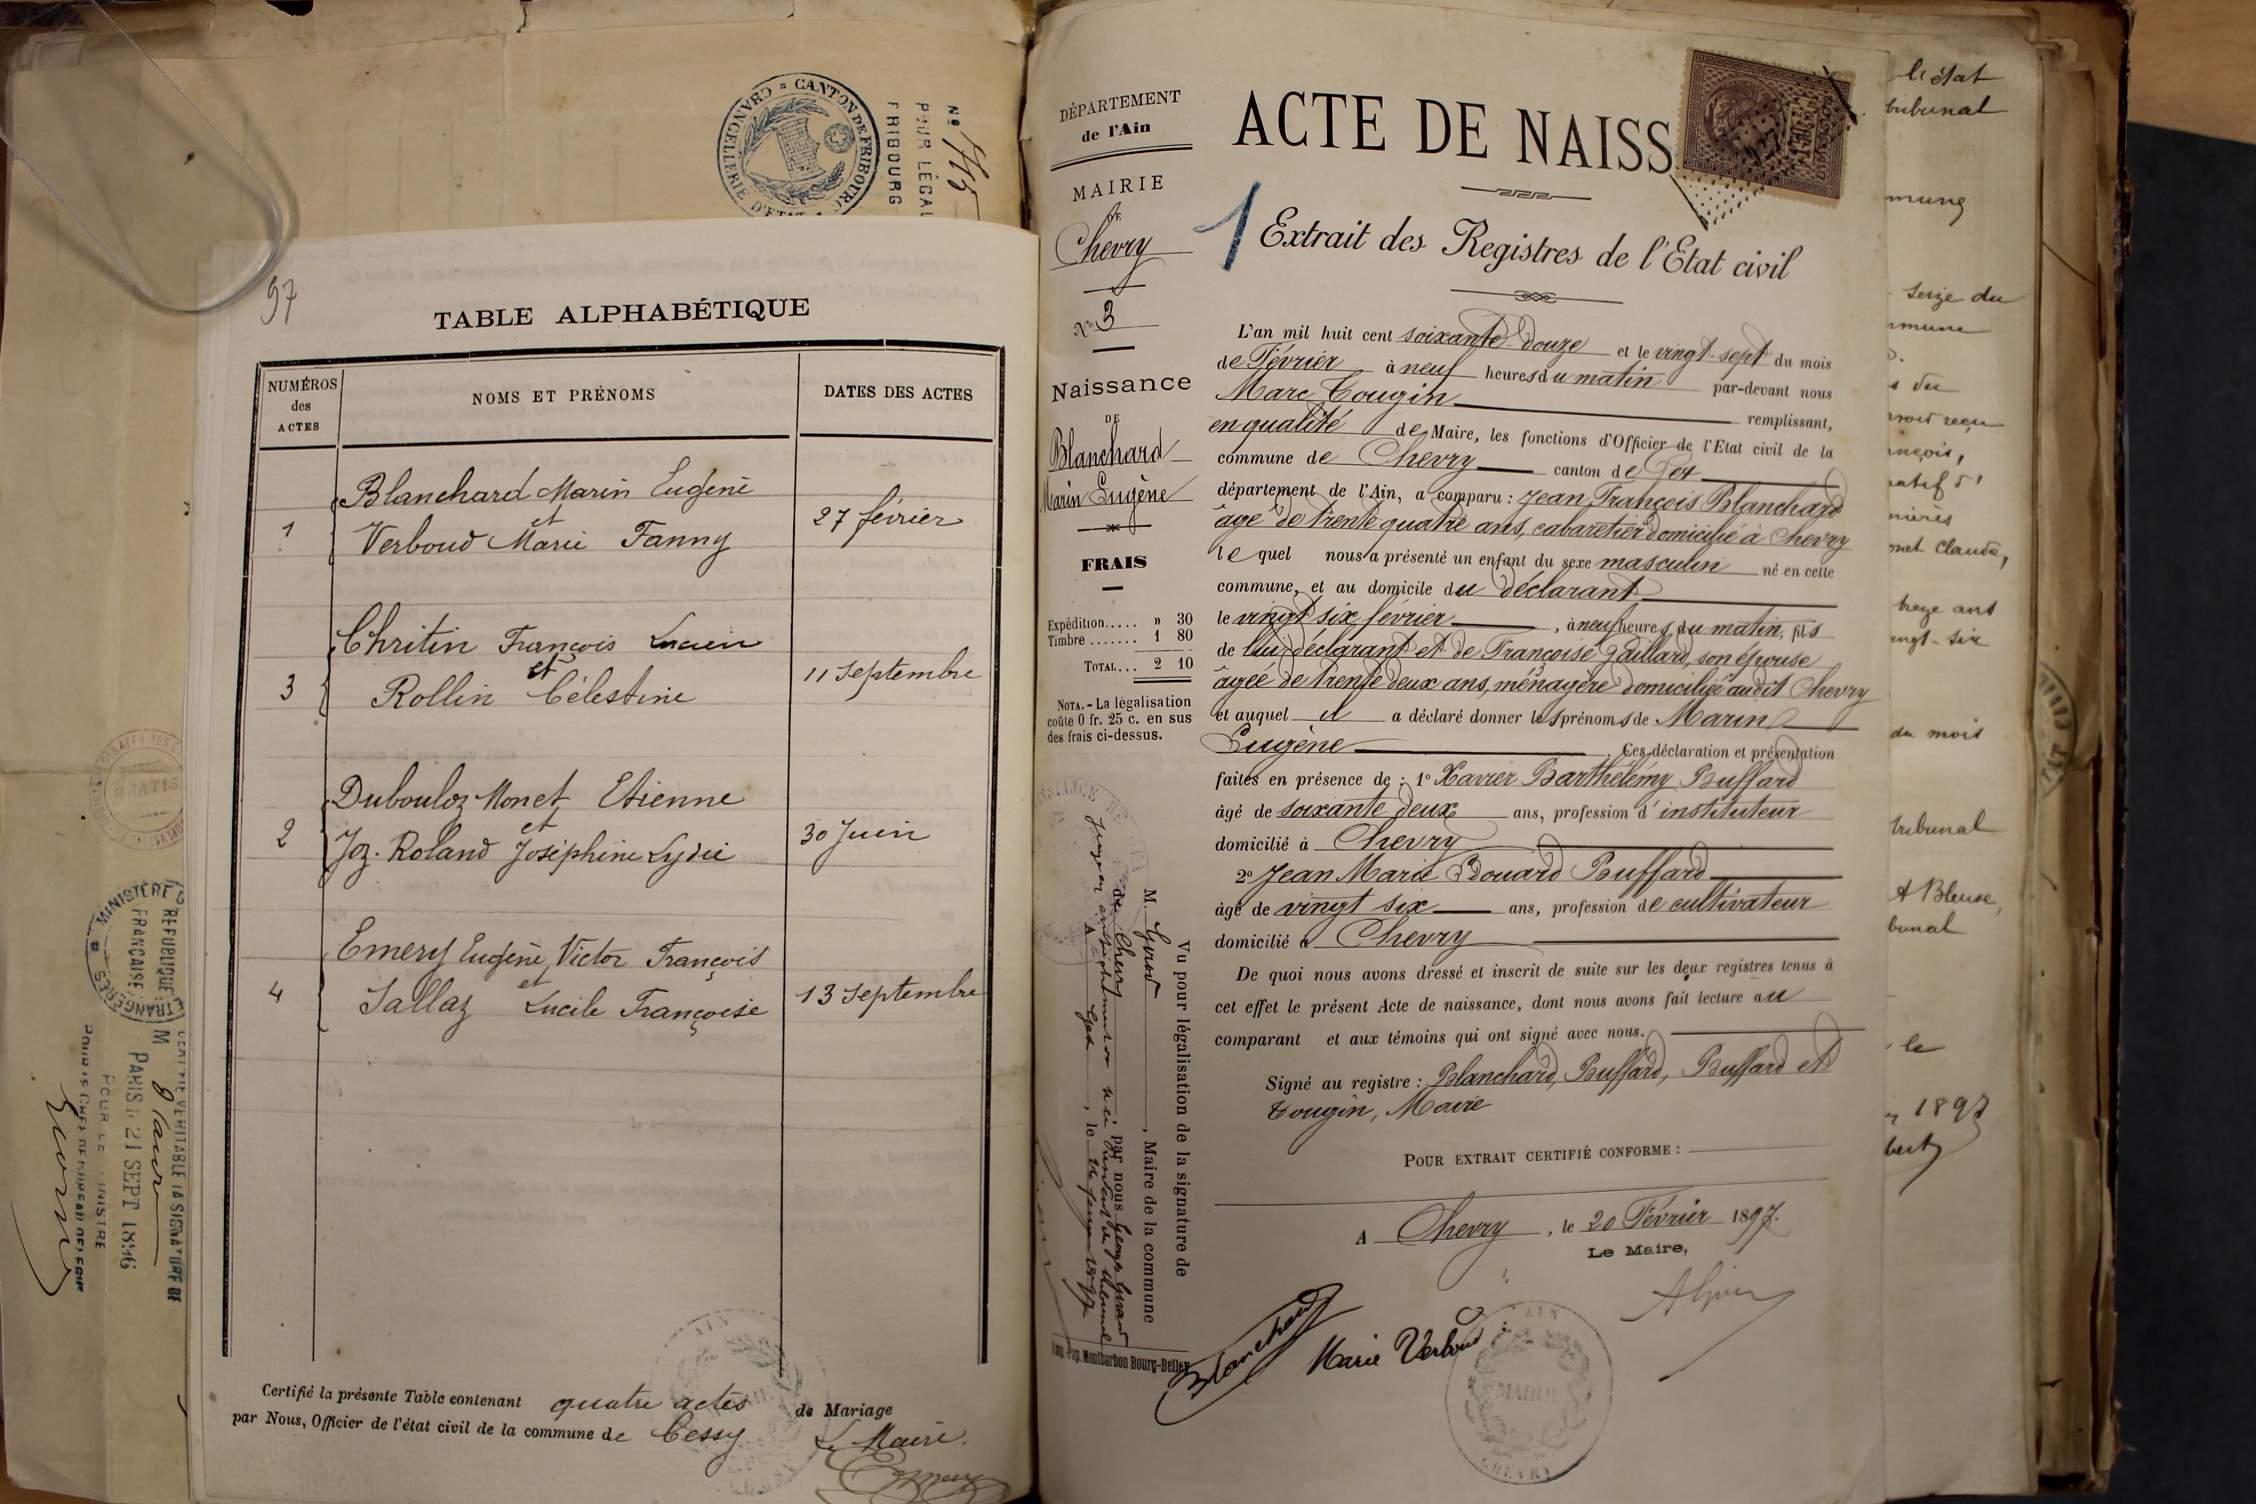 CHANCELLERIE D'ETAT
CANTON DE FRIBOURG
No 745
POUR LÉGAL
FRIBOURG
97
TABLE ALPHABÉTIQUE
NUMÉROS des ACTES
NOMS ET PRÉNOMS
DATES DES ACTES
Blanchard Marin Eugène
et
1 Verboud Marie Fanny 27 février
Chritin François Lucien
et
3 Rollin Célestine 11 Septembre
Dubouloz Monet Etienne
et
2 Joz-Roland Joséphine Lydie 30 Juin
Emery Eugène Victor François
et
4 Sallaz Lucile Françoise 13 Septembre
Certifié la présente Table contenant quatre actes de Mariage
par Nous, Officier de l'état civil de la commune de Cessy
Le Maire.
Emery
GRATIS
MINISTÈRE
ÉTRANGÈRES
REPUBLIQUE
FRANÇAISE
VERITABLE LA SIGNATURE DE
M
PARIS 21 SEPT 1896
POUR LE MINISTRE
DÉPARTEMENT
de l'Ain
MAIRIE
DE
Chevry
No 3
Naissance
DE
Blanchard
Marin Eugène
FRAIS
Expédition..... » 30
Timbre ....... 1 80
TOTAL... 2 10
NOTA. - La légalisation
coûte 0 fr. 25 c. en sus
des frais ci-dessus.
Vu pour légalisation de la signature de
M. Girod, Maire de la commune
de Chevry, par nous
A Gex, le
Imp.-Pap. Montbarbon Bourg-Belley
ACTE DE NAISS
1
Extrait des Registres de l'Etat civil
L'an mil huit cent soixante-douze et le vingt-sept du mois
de Février à neuf heures du matin par-devant nous
Marc Tougin remplissant,
en qualité de Maire, les fonctions d'Officier de l'Etat civil de la
commune de Chevry canton de Gex
département de l'Ain, a comparu : Jean François Blanchard
âgé de trente quatre ans, cabaretier domicilié à Chevry
lequel nous a présenté un enfant du sexe masculin né en cette
commune, et au domicile du déclarant
le vingt six février, à neuf heures du matin, fils
de lui déclarant et de Françoise Gaillard, son épouse
âgée de trente deux ans, ménagère domiciliée audit Chevry
et auquel il a déclaré donner les prénoms de Marin
Eugène. Ces déclaration et présentation
faites en présence de : 1o Xavier Barthélémy Buffard
âgé de soixante deux ans, profession d'instituteur
domicilié à Chevry
2o Jean Marie Edouard Buffard
âgé de vingt six ans, profession de cultivateur
domicilié à Chevry
De quoi nous avons dressé et inscrit de suite sur les deux registres tenus à
cet effet le présent Acte de naissance, dont nous avons fait lecture au
comparant et aux témoins qui ont signé avec nous.
Signé au registre : Blanchard, Buffard, Buffard et
Tougin, Maire
POUR EXTRAIT CERTIFIÉ CONFORME :
A Chevry, le 20 Février 1897.
Le Maire,
Blanchard
Marie Verboud
AIN
MAIRIE
CHEVRY
l'état
tribunal
seize du
mmune
du
reçu
nçois,
Claude,
treize ans
vingt-six
du mois
tribunal
bunal
le
1897